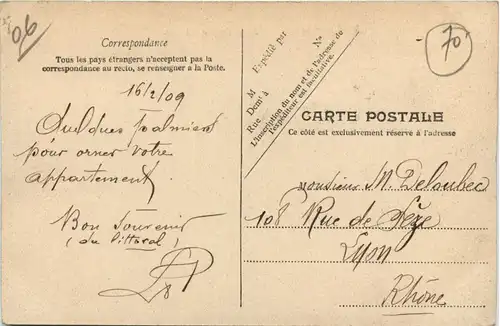 06
Correspondance
Tous les pays étrangers n'acceptent pas la
correspondance au recto, se renseigner à la Poste.
16/2/09
Quelques palmiers
pour orner votre
appartement.
Bon Souvenir
(du littoral)
Expédié par
M
Demt à
Rue No
L'inscription du nom et de l'adresse de
l'expéditeur est facultative.
70
CARTE POSTALE
Ce côté est exclusivement réservé à l'adresse
Monsieur M. Deloubec
108 Rue de Sèze
Lyon
Rhône